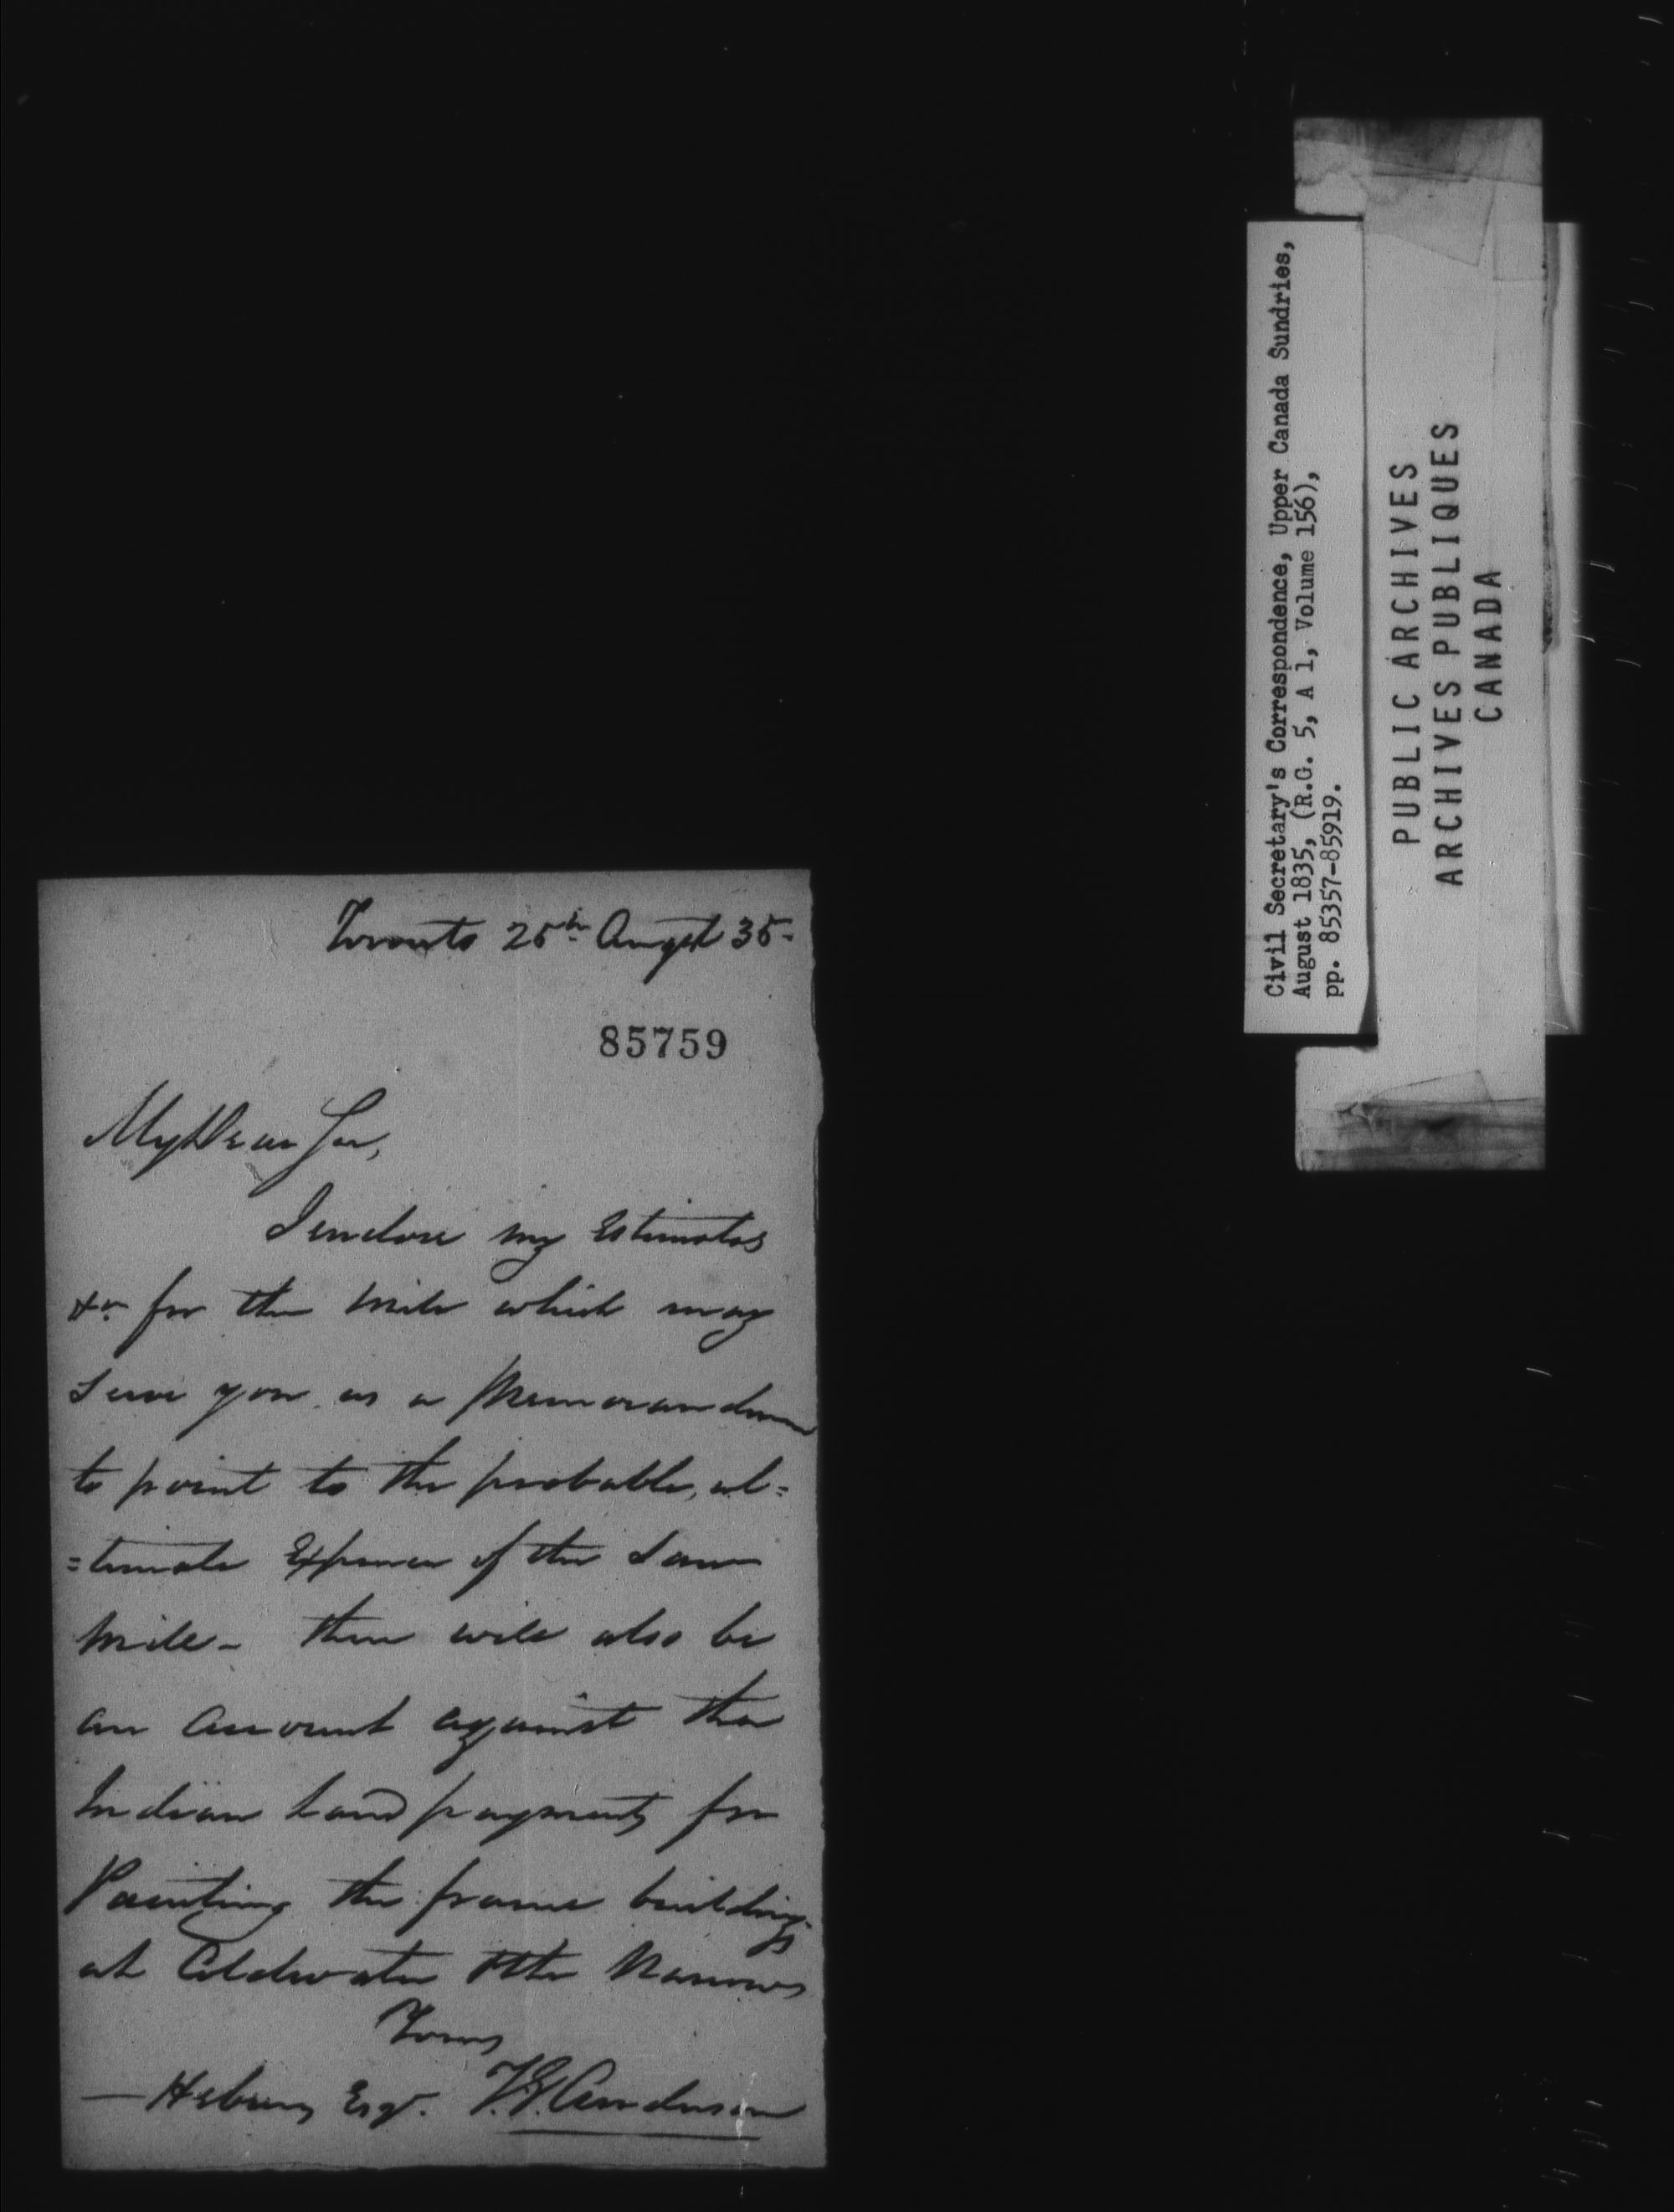 Toronto 25th August 35-
85759
My Dear Sir,
I enclose my Estimates
&c for the Mill which may
serve you as a Memorandum
to point to the probable, ul=
=timate Expence of the Saw
Mill - there will also be
an account against the
Indian Land payments for
Painting the frame buildings
at Coldwater & the Narrows
Yours
T.G. Anderson
— Hepburn Esqr.
Civil Secretary's Correspondence, Upper Canada Sundries,
August 1835, (R.G. 5, A 1, Volume 156),
pp. 85357-85919.
PUBLIC ARCHIVES
ARCHIVES PUBLIQUES
CANADA